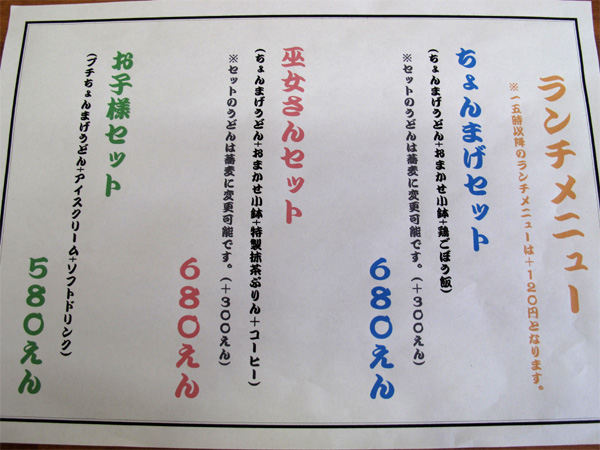 ランチメニュー
※一五時以降のランチメニューは+120円となります。
ちょんまげセット
(ちょんまげうどん+おまかせ小鉢+鶏ごぼう飯)
※セットのうどんは蕎麦に変更可能です。(+300えん)
680えん
巫女さんセット
(ちょんまげうどん+おまかせ小鉢+特製抹茶ぷりん+コーヒー)
※セットのうどんは蕎麦に変更可能です。(+300えん)
680えん
お子様セット
(プチちょんまげうどん+アイスクリーム+ソフトドリンク)
580えん